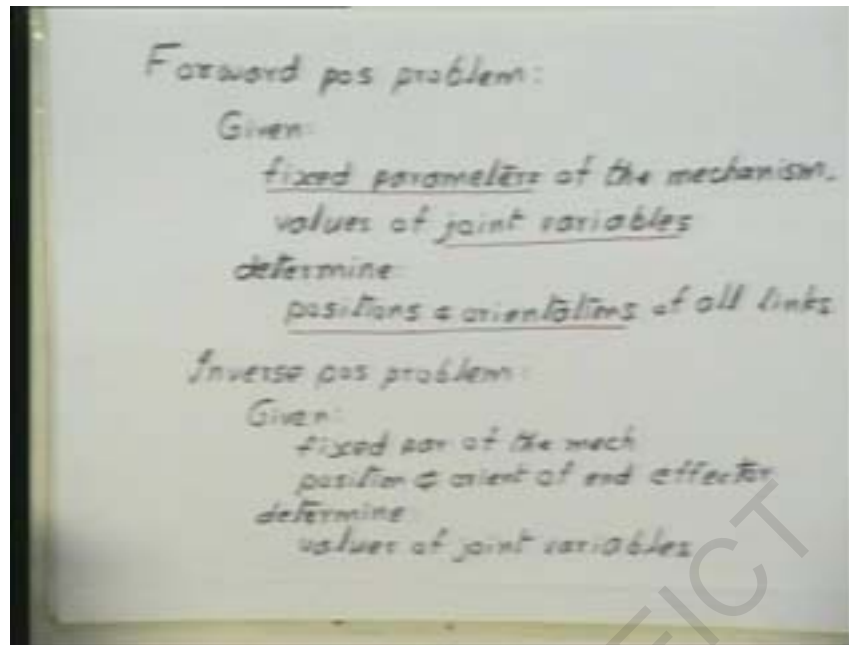 Forward pos problem:
Given:
fixed parameters of the mechanism.
values of joint variables
determine:
positions & orientations of all links
Inverse pos problem:
Given:
fixed par of the mech
position & orient of end effector
determine:
values of joint variables
EICT